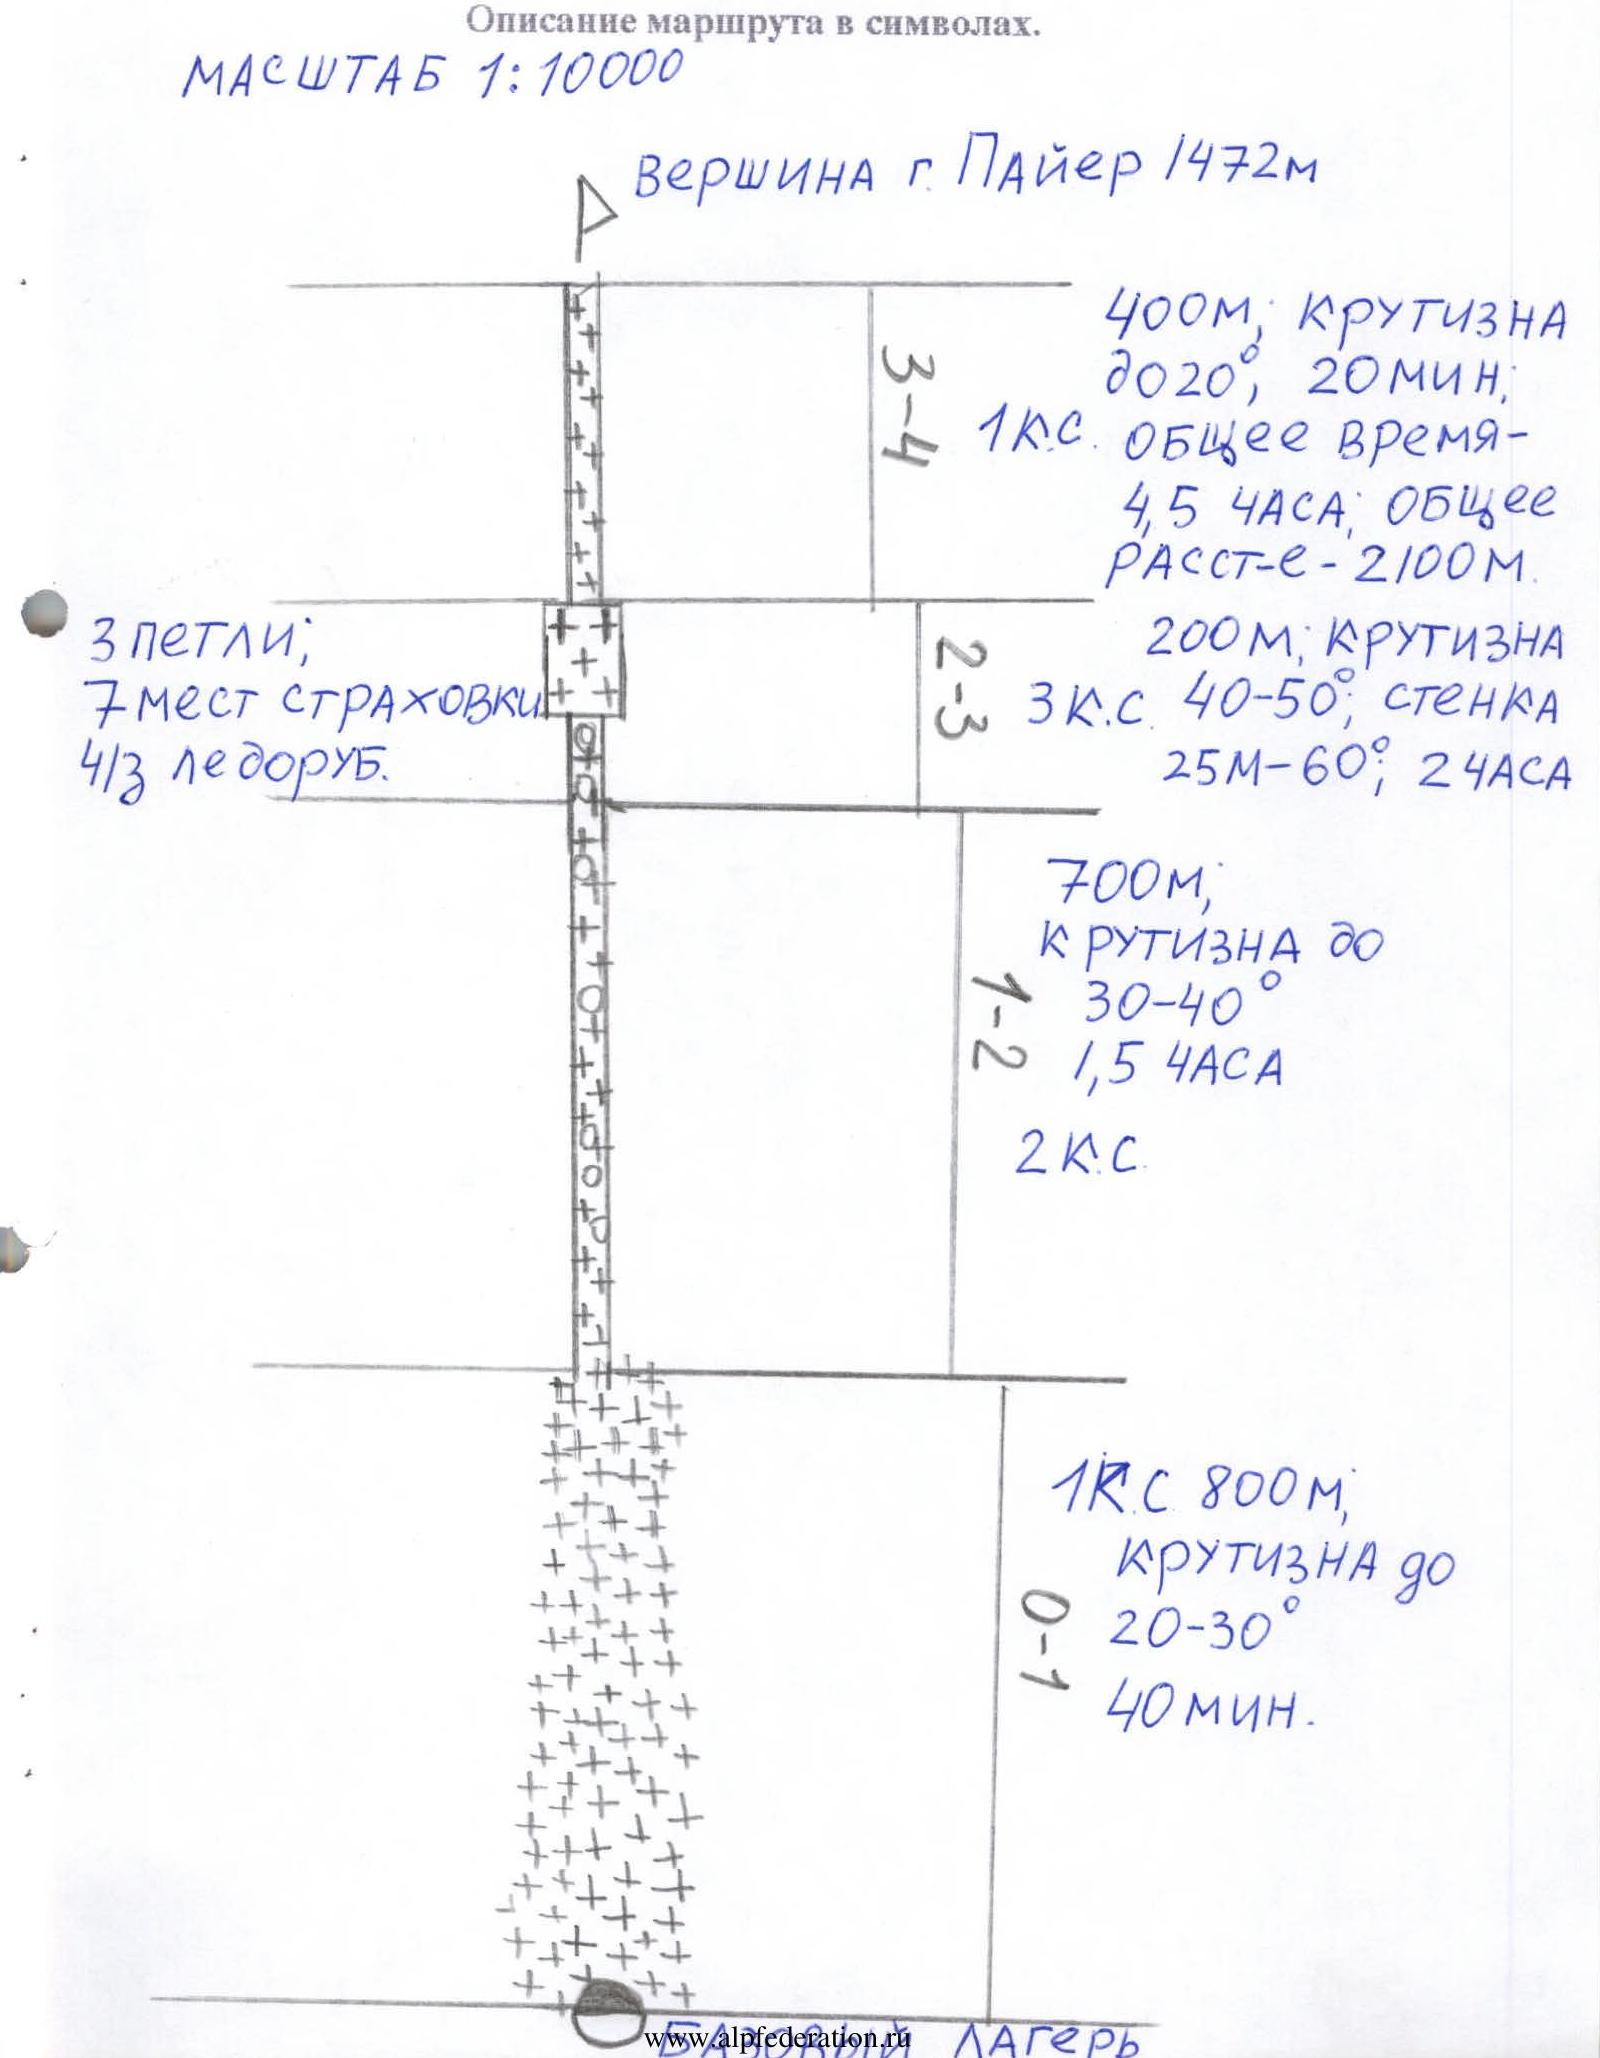 Описание маршрута в символах.
МАСШТАБ 1:10000
ВЕРШИНА г. ПАЙЕР 1472м
400м; КРУТИЗНА
до 20°, 20 МИН;
1 К.С. ОБЩЕЕ ВРЕМЯ-
4,5 ЧАСА; ОБЩЕЕ
РАССТ-е - 2100М.
3-4
3 ПЕТЛИ;
7 МЕСТ СТРАХОВКИ
ч/з ЛЕДОРУБ.
2-3
200М; КРУТИЗНА
3 К.С. 40-50°; СТЕНКА
25М-60°; 2 ЧАСА
700М;
КРУТИЗНА ДО
30-40°
1,5 ЧАСА
1-2
2 К.С.
1 К.С. 800М,
КРУТИЗНА ДО
20-30°
0-1
40 МИН.
БАЗОВЫЙ ЛАГЕРЬ
www.alpfederation.ru